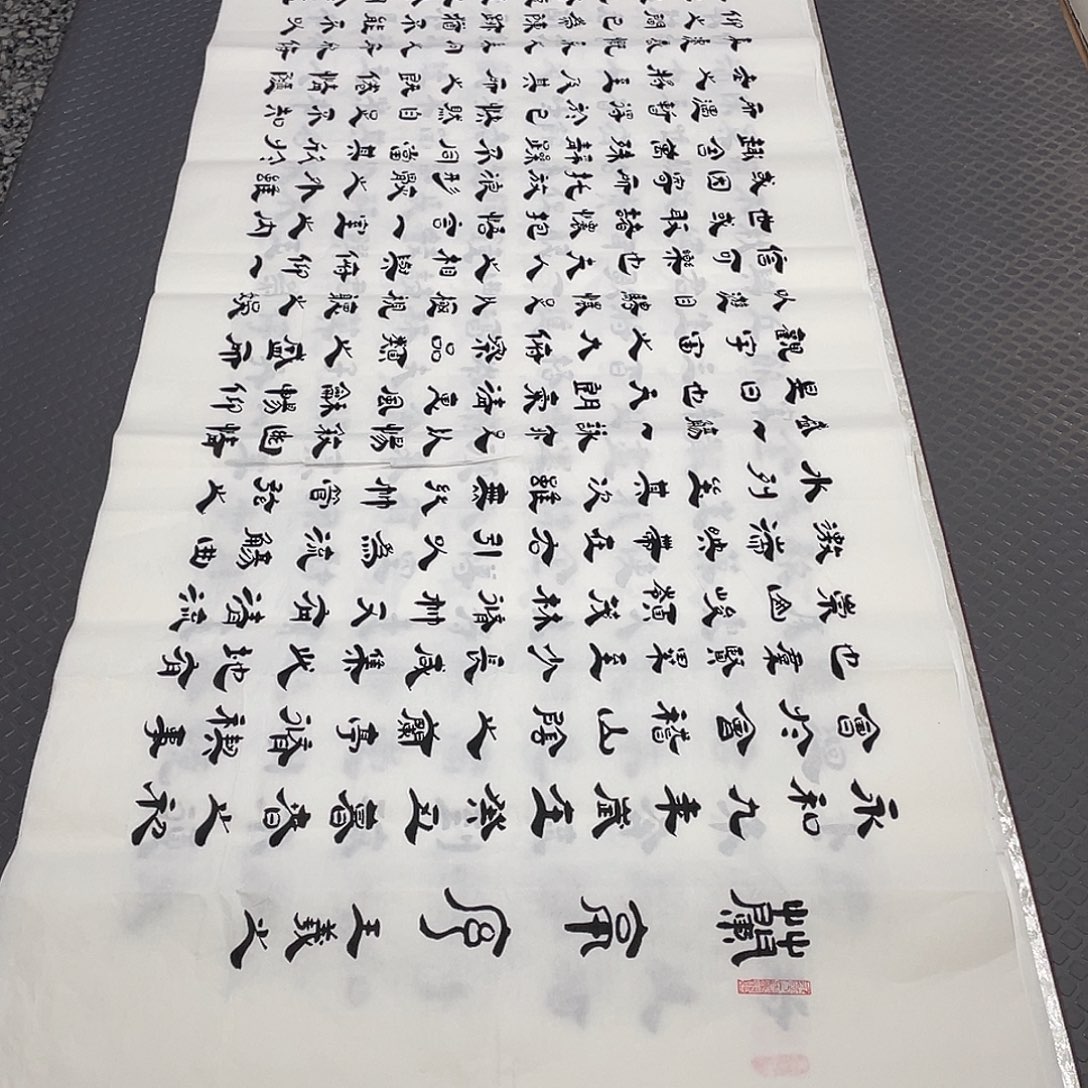 蘭亭序王羲之
永和九年歲在癸丑暮春之初
會於會稽山陰之蘭亭脩禊事
也羣賢畢至少長咸集此地有
崇山峻嶺茂林脩竹又有清流
激湍映帶左右引以為流觴曲
水列坐其次雖無絲竹管弦之
盛一觴一詠亦足以暢敘幽情
是日也天朗氣清惠風和暢仰
觀宇宙之大俯察品類之盛所
以遊目騁懷足以極視聽之娛
信可樂也夫人之相與俯仰一
世或取諸懷抱悟言一室之內
或因寄所托放浪形骸之外雖
趣舍萬殊靜躁不同當其欣於
所遇暫得於己快然自足不知
老之將至及其所之既倦情隨